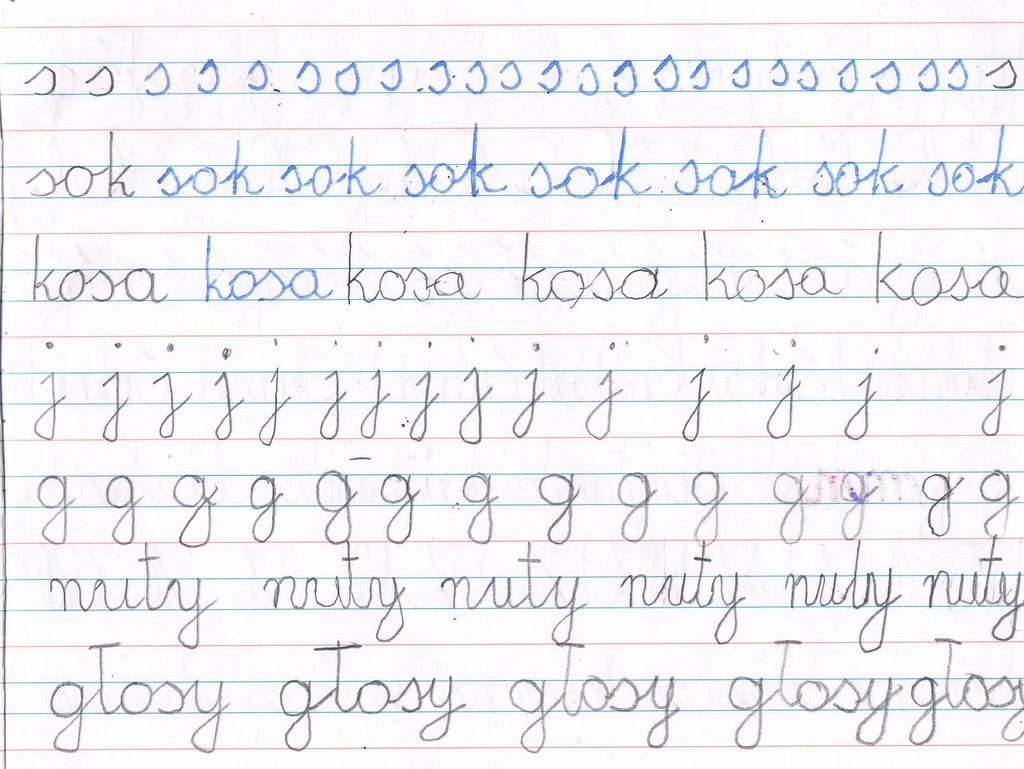 s s s s s s s s s s s s s s s s s s s s s s s s
sok sok sok sok sok sok sok sok
kosa kosa kosa kosa kosa kosa
j j j j j j j j j j j j j j j
g g g g g g g g g g g g g g
nuty nuty nuty nuty nuty nuty
głosy głosy głosy głosy głosy